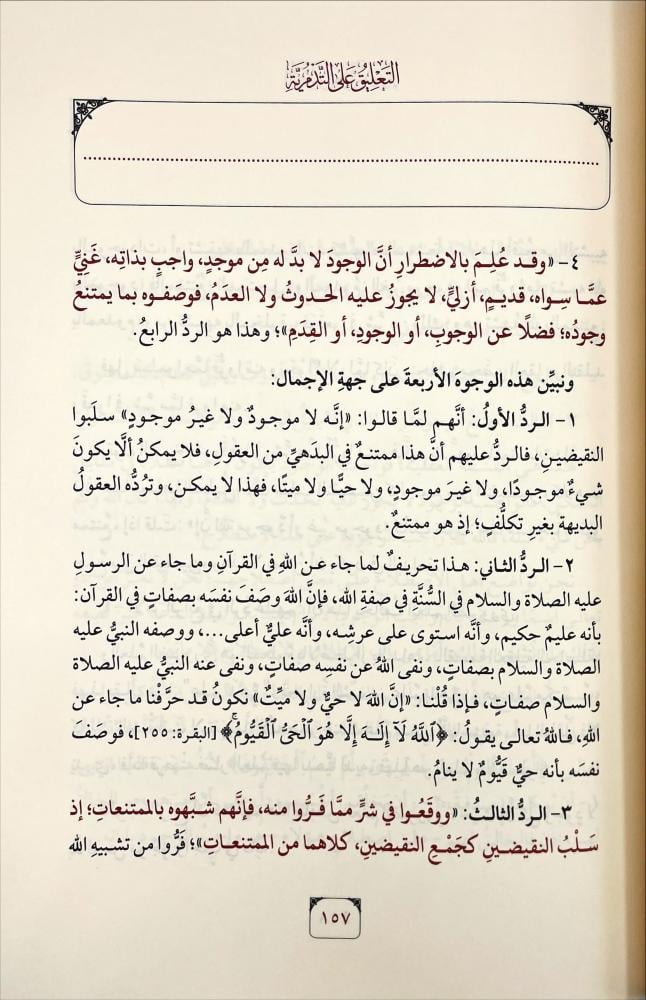 التعليق على التدمرية
٤- «وقد عُلِمَ بالاضطرارِ أنَّ الوجودَ لا بدَّ له مِن موجدٍ، واجبٍ بذاتِه، غَنِيٍّ
عمَّا سِواه، قديمٍ، أزليٍّ، لا يجوزُ عليه الحدوثُ ولا العدَمُ، فوصَفوه بما يمتنعُ
وجودُه؛ فضلًا عن الوجوبِ، أو الوجودِ، أو القِدَمِ»؛ وهذا هو الردُّ الرابعُ.
ونبيِّن هذه الوجوهَ الأربعةَ على جهةِ الإجمال:
١- الردُّ الأولُ: أنَّهم لمَّا قالوا: «إنَّه لا موجودٌ ولا غيرُ موجودٍ» سلَبوا
النقيضينِ، فالردُّ عليهم أنَّ هذا ممتنعٌ في البدَهيِّ من العقولِ، فلا يمكنُ ألَّا يكونَ
شيءٌ موجودًا، ولا غيرَ موجودٍ، ولا حيًّا ولا ميتًا، فهذا لا يمكن، وترُدُّه العقولُ
البديهة بغيرِ تكلُّفٍ؛ إذ هو ممتنعٌ.
٢- الردُّ الثاني: هذا تحريفٌ لما جاء عن اللهِ في القرآنِ وما جاء عن الرسولِ
عليه الصلاة والسلام في السُّنَّةِ في صفةِ الله، فإنَّ اللهَ وصَفَ نفسَه بصفاتٍ في القرآن:
بأنه عليمٌ حكيم، وأنَّه استوى على عرشِه، وأنه عليٌّ أعلى...، ووصفه النبيُّ عليه
الصلاة والسلام بصفاتٍ، ونفى اللهُ عن نفسِه صفاتٍ، ونفى عنه النبيُّ عليه الصلاة
والسلام صفاتٍ، فإذا قُلْنا: «إنَّ اللهَ لا حيٌّ ولا ميِّتٌ» نكونُ قد حرَّفْنا ما جاء عن
اللهِ، فاللهُ تعالى يقولُ: ﴿ٱللَّهُ لَآ إِلَٰهَ إِلَّا هُوَ ٱلۡحَيُّ ٱلۡقَيُّومُۚ﴾ [البقرة: ٢٥٥]، فوصَفَ
نفسَه بأنه حيٌّ قَيُّومٌ لا ينامُ.
٣- الردُّ الثالثُ: «ووقَعُوا في شرٍّ ممَّا فَرُّوا منه، فإنَّهم شبَّهوه بالممتنعاتِ؛ إذ
سَلْبُ النقيضينِ كجَمْعِ النقيضينِ، كلاهما من الممتنعاتِ»؛ فَرُّوا من تشبيهِ الله
١٥٧